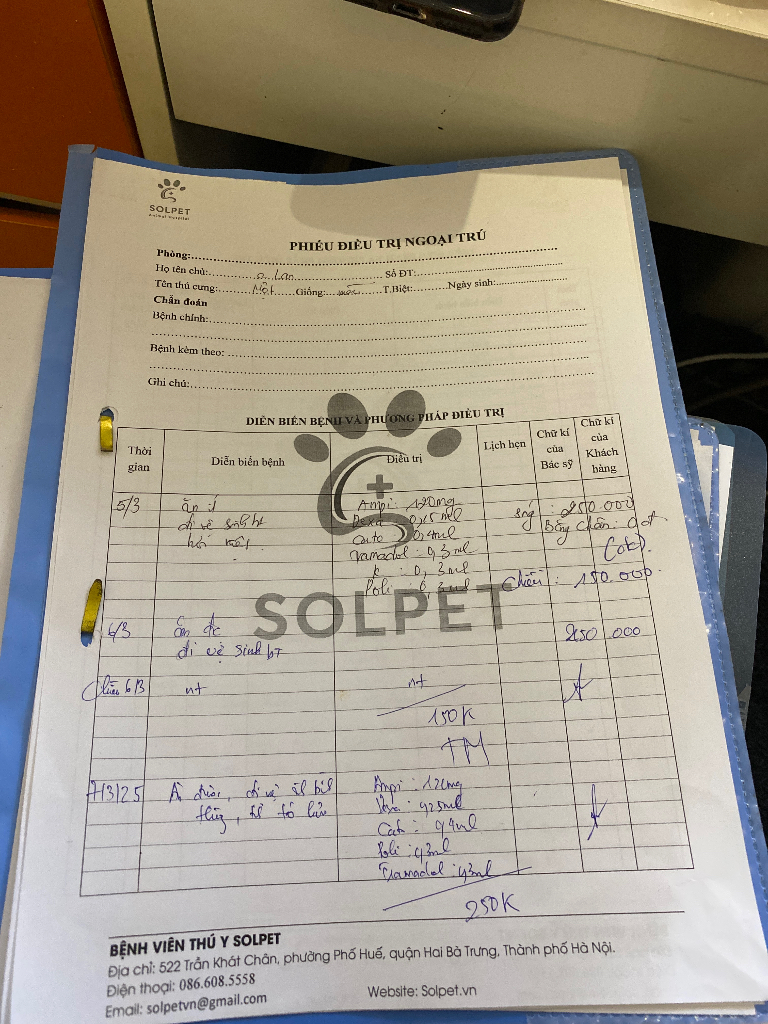 SOLPET
Animal Hospital
PHIẾU ĐIỀU TRỊ NGOẠI TRÚ
Phòng:
Họ tên chủ: Lan Số ĐT:
Tên thú cưng: Giống: T.Biệt: Ngày sinh:
Chẩn đoán
Bệnh chính:
Bệnh kèm theo:
Ghi chú:
DIỄN BIẾN BỆNH VÀ PHƯƠNG PHÁP ĐIỀU TRỊ
Thời gian Diễn biến bệnh Điều trị Lịch hẹn Chữ kí của Bác sỹ Chữ kí của Khách hàng
5/3 ăn ít Ampi: 120mg sáng: 250.000
đi vệ sinh bt Dexa: 0,15ml Băng chân:
Cato: 0,4ml (ck).
Tramadol: 0,3ml
k: 0,3ml
Poli: 0,3ml chiều: 150.000.
SOLPET
6/3 ăn đc 250 000
đi vệ sinh bt
Chiều 6/3 nt nt
150K
TM
7/3/25 đi vệ Ampi: 120mg
Cato: 0,4ml
Poli: 0,3ml
Tramadol: 0,3ml
250K
BỆNH VIỆN THÚ Y SOLPET
Địa chỉ: 522 Trần Khát Chân, phường Phố Huế, quận Hai Bà Trưng, Thành phố Hà Nội.
Điện thoại: 086.608.5558
Email: solpetvn@gmail.com Website: Solpet.vn